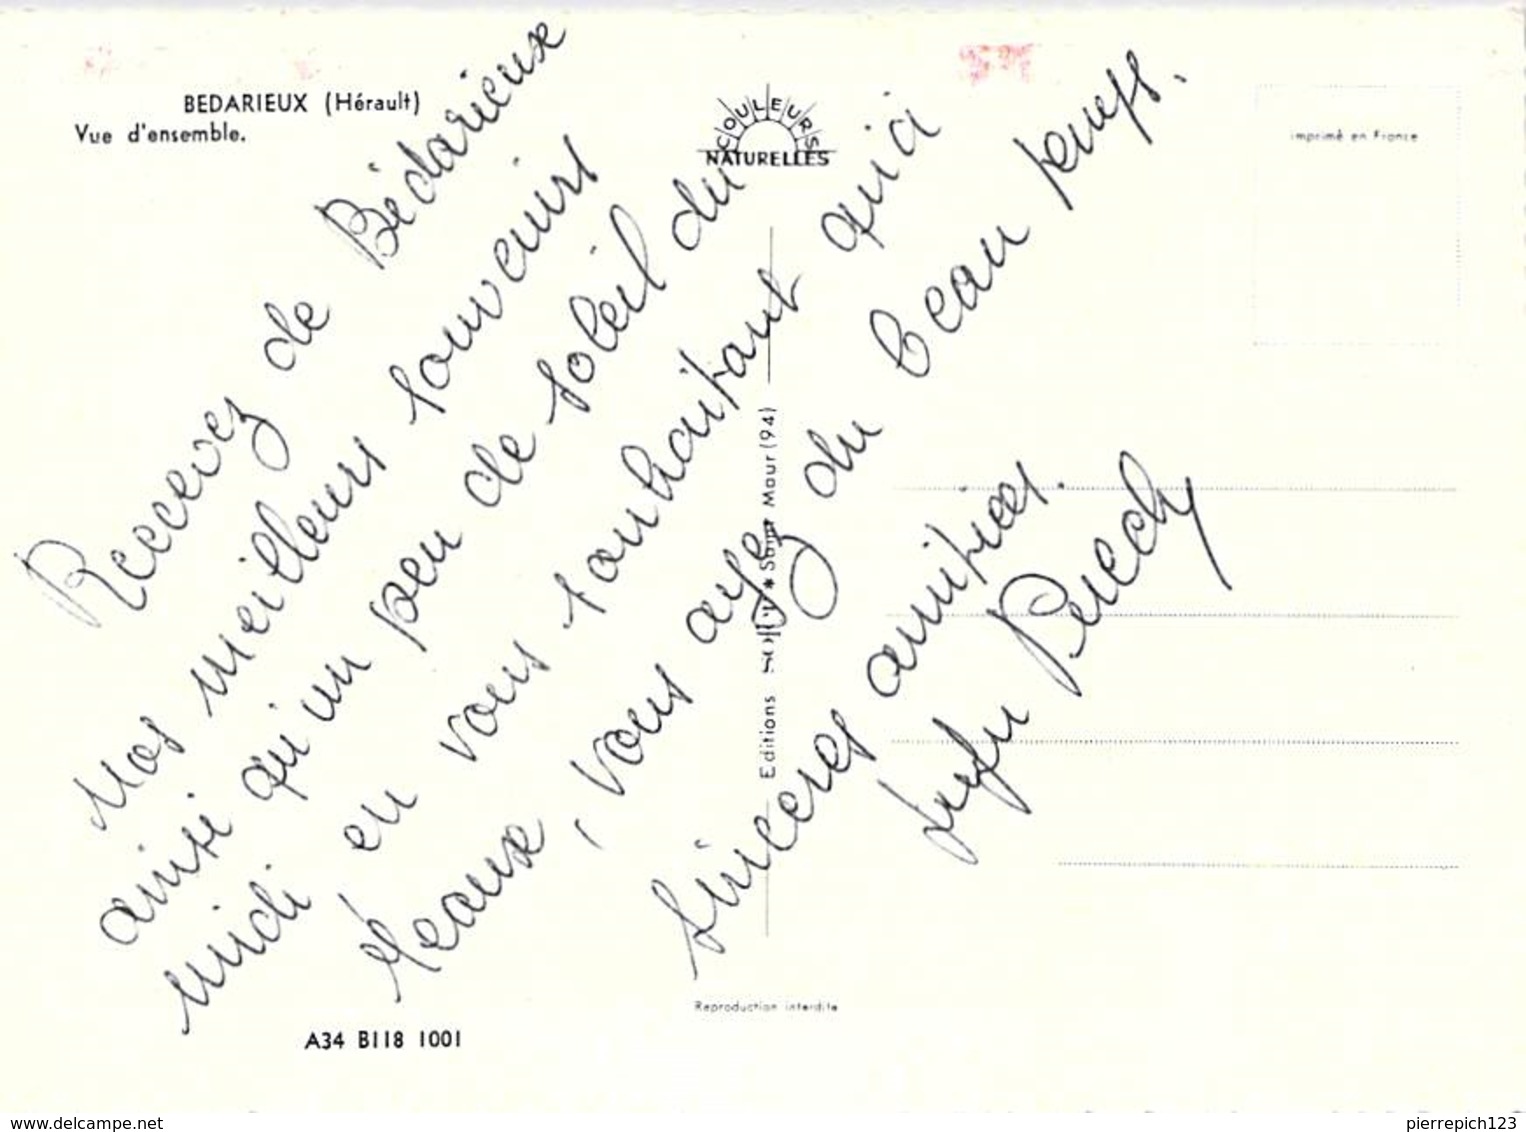 BEDARIEUX (Hérault)
Vue d'ensemble.
COULEURS
NATURELLES
imprimé en France
Recevez de Bédarieux
Mos meilleurs souvenirs
ainsi qu'un peu de soleil du
midi en vous souhaitant qu'a
Meaux, vous ayez du beau temps.
Sincères amitiés.
Puech
Editions * Saint Maur (94)
Reproduction interdite
A34 B118 1001
www.delcampe.net
pierrepich123